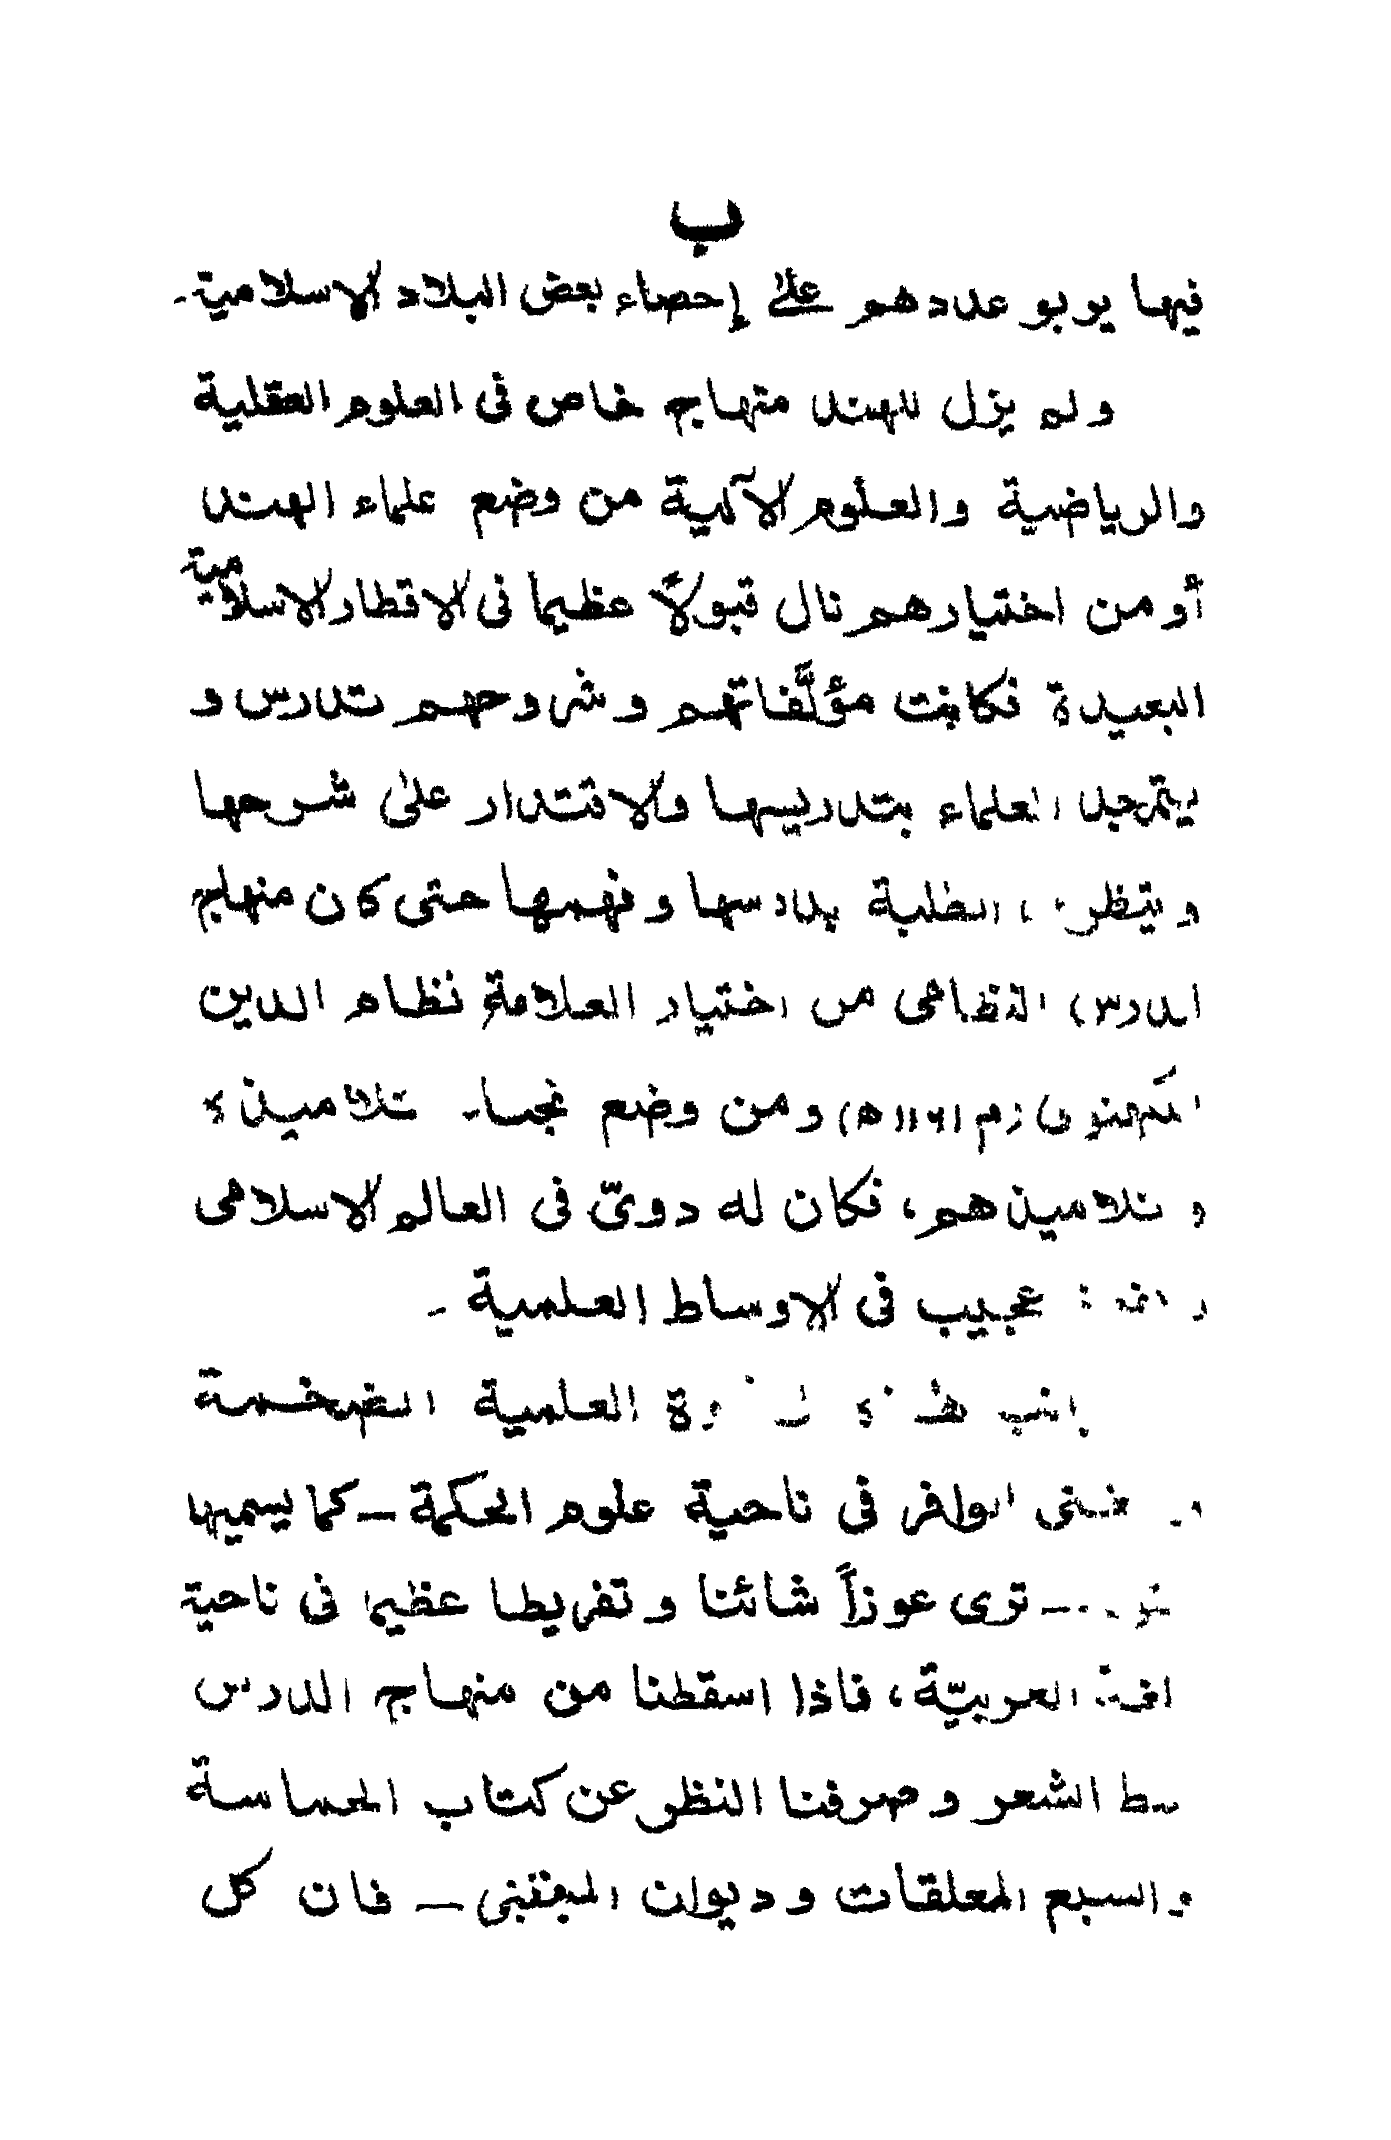 ب
فيها يربو عددهم على إحصاء بعض البلاد الاسلامية ـ
ولم يزل للهند منهاج خاص فى العلوم العقلية
والرياضية والعلوم الآلية من وضع علماء الهند
أو من اختيارهم نال قبولاً عظيما فى الاقطار الاسلامية
البعيدة فكانت مؤلَّفاتهم وشروحهم تدرس و
يتمجد العلماء بتدريسها والاقتدار على شرحها
و الطلبة بدرسها وفهمها حتى كان منهاج
الدرس النظامى من اختيار العلامة نظام الدين
اللكهنوى (م ١١٦١ھ) ومن وضع نجباء تلاميذه
و تلاميذهم، فكان له دوىّ فى العالم الاسلامى
عجيب فى الاوساط العلمية ـ
العلمية الضخمة
الوافر فى ناحية علوم الحكمة ـ كما يسميها
ـ ترى عوزاً شائنا وتفريطا عظيما فى ناحية
العربيّة، فاذا اسقطنا من منهاج الدرس
الشعر وصرفنا النظر عن كتاب الحماسة
والسبع المعلقات وديوان المتنبى ـ فان كل